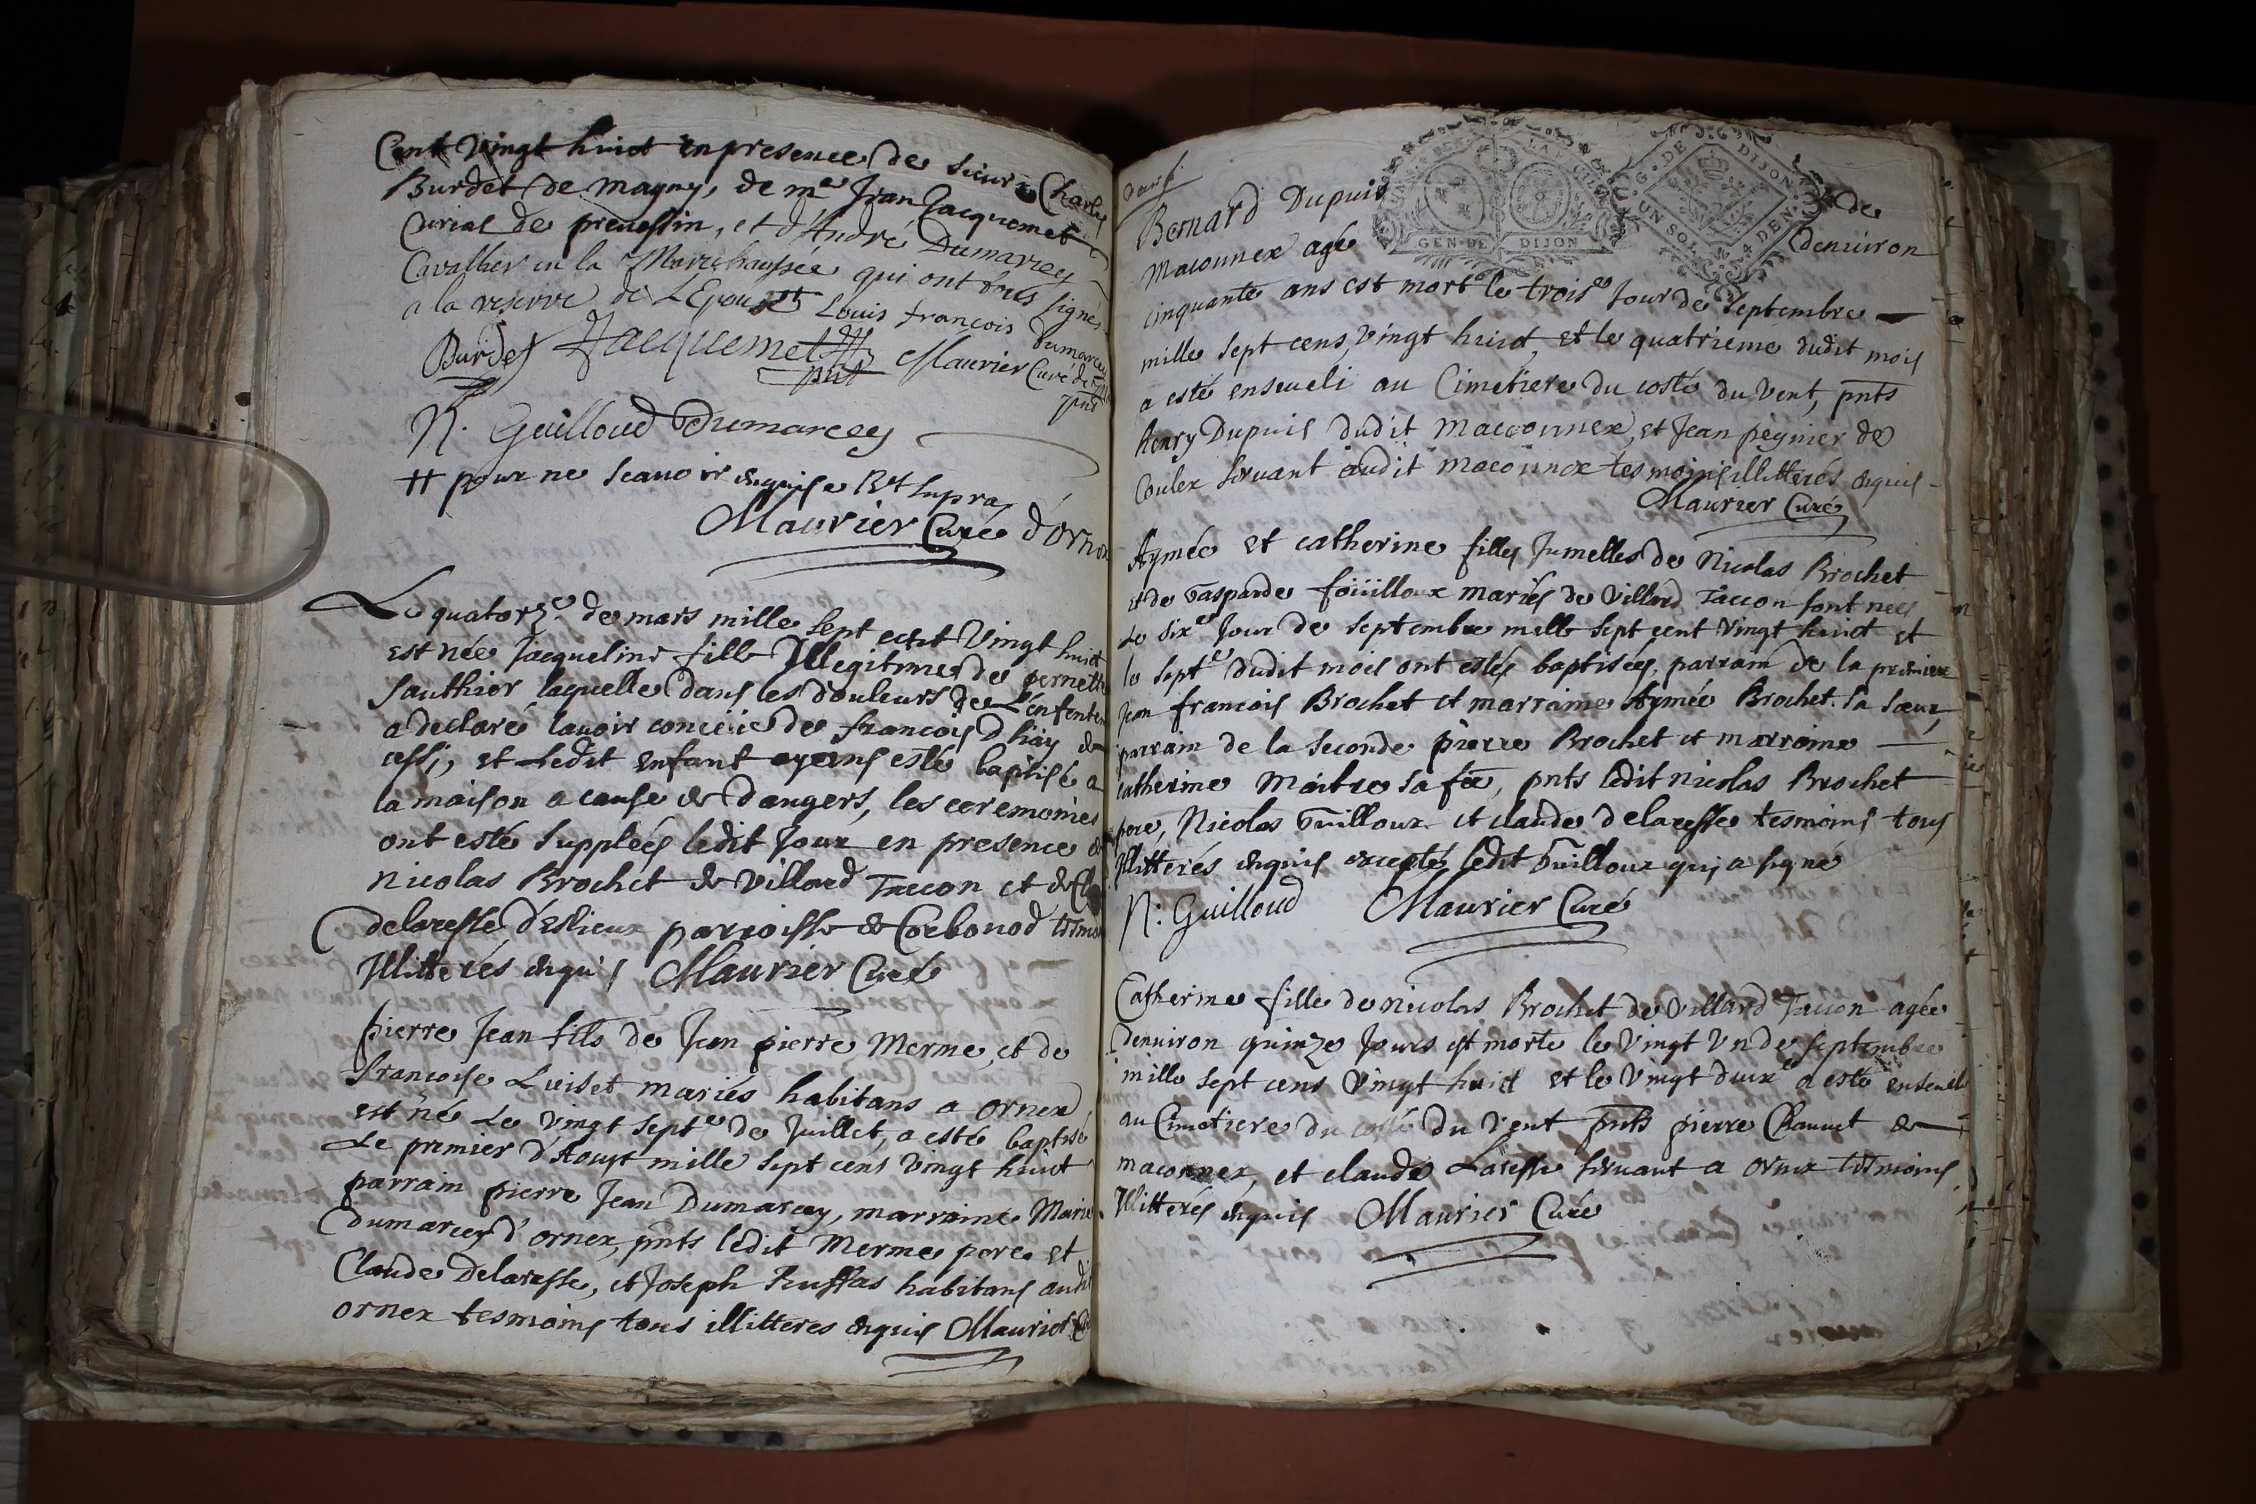 Cent Vingt huict en presence de sieur Charles
Burdet de magny, de me Jean Jacquemet
Curial de prevessin, et d'André Dumarcey
Cavallier en la Marechaussée qui ont tous signés
a la reserve de L'Epouse # Louis françois Dumarcey
Burdet Jacquemet pnt Maurier Curé de
pnt
N. Guilloud Dumarcey
# pour ne scavoir enquise Et supra
Maurier Curé d'Ornex
Le quatorze de mars mille sept cent Vingt huict
est née Jacqueline fille Illegitime de pernette
Sauthier laquelle dans les douleurs de L'enfentem
a declaré lavoir conceüe de françois de
cessi, et Ledit enfant ayant esté baptisé a
la maison a cause de dangers, les ceremonies
ont esté suppleés ledit Jour en presence de
Nicolas Brochet de Villard Taccon et de Cl
delaresse d'Eslieux parroisse de Corbonod tesmo
Illitterés enquis Maurier Curé
pierre Jean fils de Jean pierre Merme, et de
françoise Luiset mariés habitans a ornex
est né Le vingt septe de Juillet, a esté baptisé
Le premier d'Aougt mille sept cens vingt huict
parrain pierre Jean Dumarcey, marraine Marie
Dumarcey d'ornex, pnts ledit Merme pere et
Claude Delaresse, et Joseph Ruffas habitans audit
ornex tesmoins tous illitteres enquis Maurier Cu
Bernard Dupuis de
Maconnex agé denviron
GEN·DE DIJON
G·DE DIJON
UN SOL 4 DEN
cinquante ans est mort le troise Jour de Septembre
mille sept cens vingt huict, et le quatrieme dudit mois
a esté enseveli au Cimetiere du costé du vent, pnts
henry Dupuis dudit macconnex, et Jean pegnier de
Coulex servant audit maconnex tesmoins illitterés enquis
Maurier Curé
Aymée et catherine filles Jumelles de Nicolas Brochet
et de Gasparde foüilloux mariés de Villard Taccon sont nées
Le sixe Jour de septembre mille sept cent vingt huict et
le septe dudit mois ont estés baptisées, parrain de la premiere
Jean francois Brochet et marraine Aymée Brochet sa sœur,
parrain de la seconde pierre Brochet et marraine
catherine Maitre sa fẽe, pnts ledit Nicolas Brochet
pere, Nicolas Guilloux et claude delaresse tesmoins tous
Illitterés enquis excepté ledit Guilloux qui a signé
N: Guilloud Maurier Curé
Catherine fille de nicolas Brochet de Villard Taccon agée
denviron quinze Jours est morte le vingt un de septembre
mille sept cens vingt huict et le vingt deuxe a esté enseveli
au Cimetiere du costé du vent pnts pierre Chauvet de
maconnex, et claude Laresse servant a ornex tesmoins
Illitterés enquis Maurier Curé